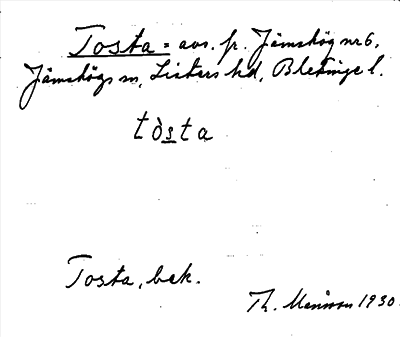 Tosta = avs. fr. Jämshög nr 6,
Jämshögs sn, Listers hd, Blekinge l.
tòsta
Tosta, bek.
Th. 1930.